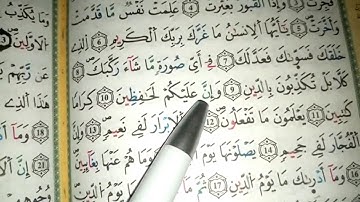 فُجِّرَتْ ٣ وَإِذَا ٱلْقُبُورُ بُعْثِرَتْ ٤ عَلِمَتْ نَفْسٌ مَّا قَدَّمَتْ
وَأَخَّرَتْ ٥ يَٰٓأَيُّهَا ٱلْإِنسَٰنُ مَا غَرَّكَ بِرَبِّكَ ٱلْكَرِيمِ ٦ ٱلَّذِى
خَلَقَكَ فَسَوَّىٰكَ فَعَدَلَكَ ٧ فِىٓ أَىِّ صُورَةٍ مَّا شَآءَ رَكَّبَكَ ٨
كَلَّا بَلْ تُكَذِّبُونَ بِٱلدِّينِ ٩ وَإِنَّ عَلَيْكُمْ لَحَٰفِظِينَ ١٠ كِرَامًا
كَٰتِبِينَ ١١ يَعْلَمُونَ مَا تَفْعَلُونَ ١٢ ٱلْأَبْرَارَ لَفِى نَعِيمٍ ١٣ وَإِنَّ
ٱلْفُجَّارَ لَفِى جَحِيمٍ ١٤ يَصْلَوْنَهَا يَوْمَ ٱلدِّينِ ١٥ وَمَا هُمْ عَنْهَا بِغَآئِبِينَ
١٦ وَمَآ أَدْرَىٰكَ مَا يَوْمُ ٱلدِّينِ ١٧ ثُمَّ مَآ يَوْمُ ٱلدِّينِ